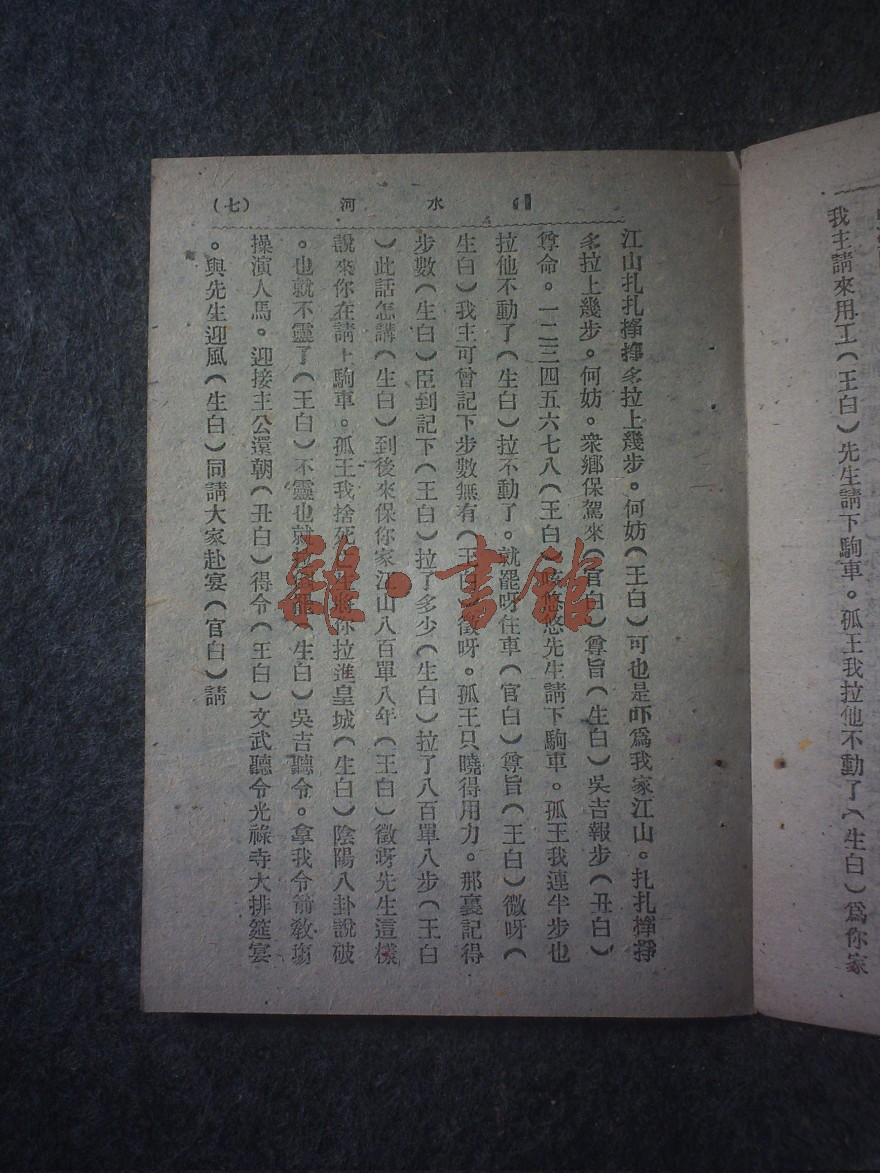 我主請來用工（王白）先生請下駒車。孤王我拉他不動了（生白）爲你家
水河（七）
江山扎扎掙掙多拉上幾步。何妨（王白）可也是吓爲我家江山。扎扎掙掙
多拉上幾步。何妨。衆鄉保駕來（官白）尊旨（生白）吳吉報步（丑白）
尊命。一二三四五六七八（王白）悠悠先生請下駒車。孤王我連半步也
拉他不動了（生白）拉不動了。就罷呀住車（官白）尊旨（王白）微呀（
生白）我主可曾記下步數無有（王白）微呀。孤王只曉得用力。那裏記得
步數（生白）臣到記下（王白）拉了多少（生白）拉了八百單八步（王白
）此話怎講（生白）到後來保你家江山八百單八年（王白）微呀先生這樣
說來你在請上駒車。孤王我捨死將你拉進皇城（生白）陰陽八卦說破
。也就不靈了（王白）不靈也就（生白）吳吉聽令。拿我令箭敎塲
操演人馬。迎接主公還朝（丑白）得令（王白）文武聽令光祿寺大排筵宴
。與先生迎風（生白）同請大家赴宴（官白）請
雜·書館